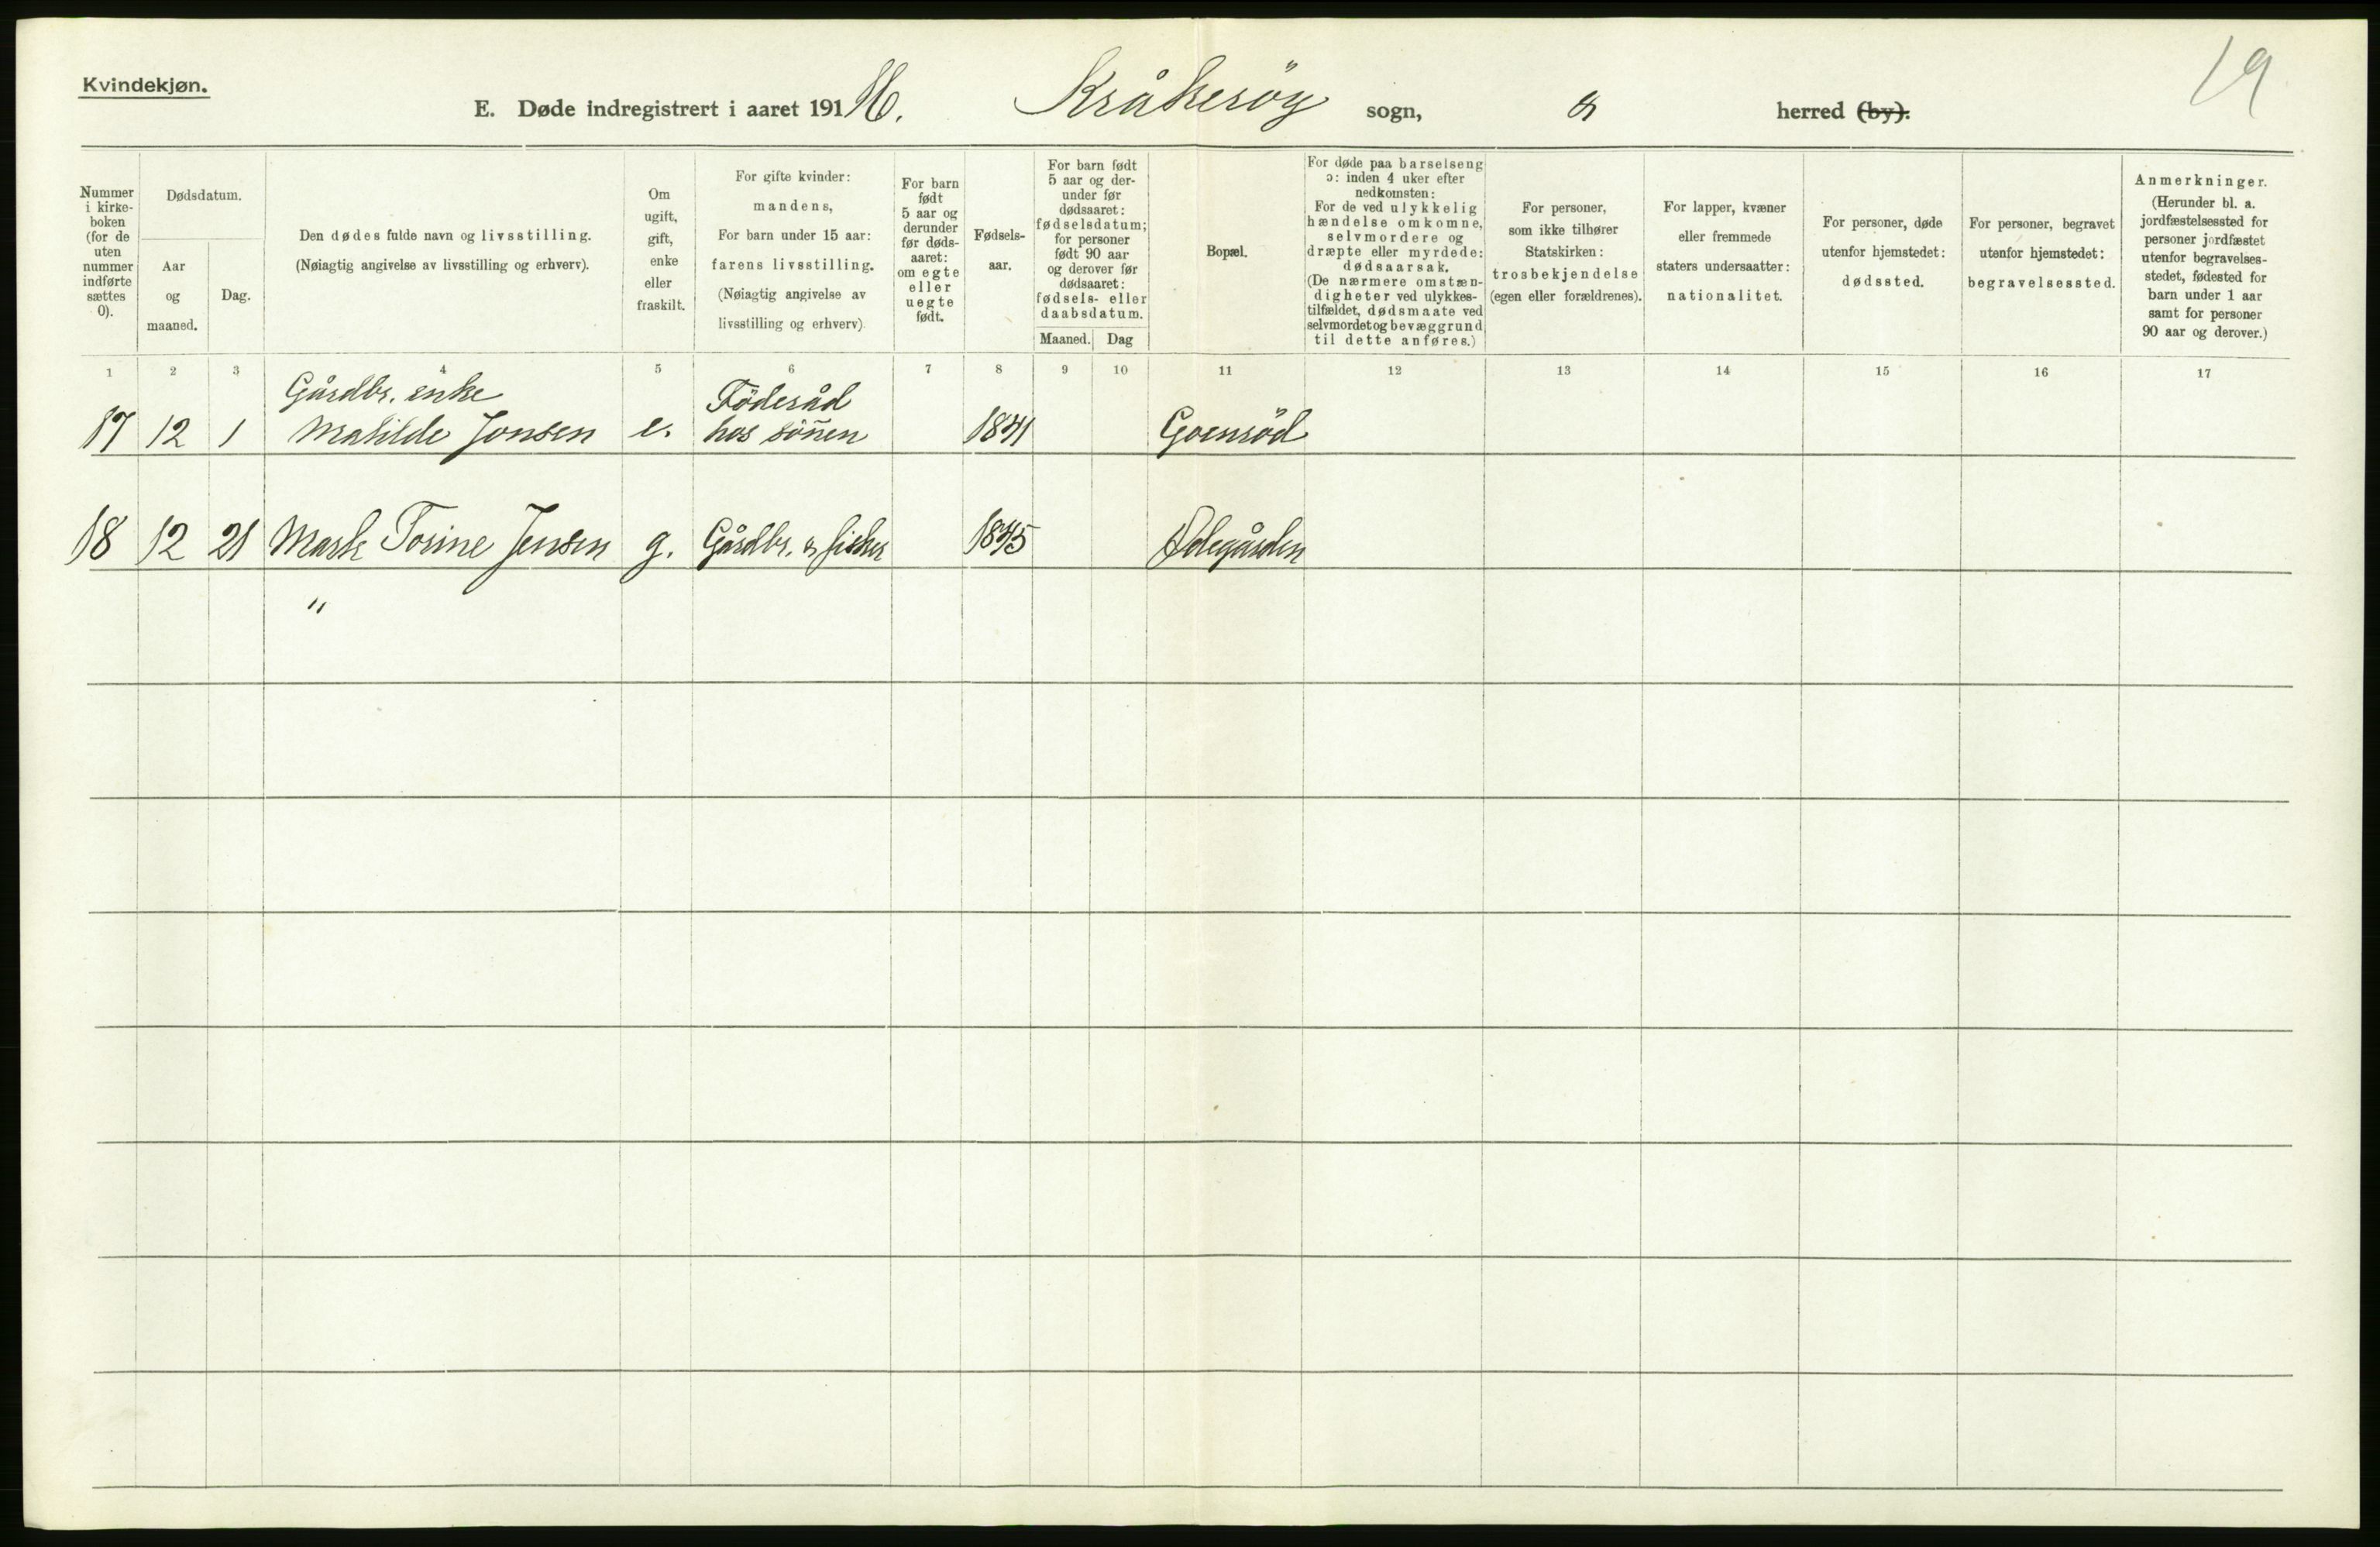 Kvindekjøn.
19
E. Døde indregistrert i aaret 1916. Kråkeröy sogn, & herred (by).
Nummer i kirke- boken (for de uten nummer indførte sættes 0).
Dødsdatum.
Aar og maaned.
Dag.
Den dødes fulde navn og livsstilling.
(Nøiagtig angivelse av livsstilling og erhverv).
Om ugift, gift, enke eller fraskilt.
For gifte kvinder:
mandens,
For barn under 15 aar:
farens livsstilling.
(Nøiagtig angivelse av
livsstilling og erhverv)
For barn født 5 aar og derunder før døds- aaret: om egte eller uegte født.
Fødsels- aar.
For barn født 5 aar og der- under før dødsaaret: fødselsdatum; for personer født 90 aar og derover før dødsaaret: fødsels- eller daabsdatum.
Maaned. Dag
Bopæl.
For døde paa barselseng
ɔ: inden 4 uker efter
nedkomsten:
For de ved ulykkelig
hændelse omkomne,
selvmordere og
dræpte eller myrdede:
dødsaarsak.
(De nærmere omstæn-
digheter ved ulykkes-
tilfældet, dødsmaate ved
selvmordet og bevæggrund
til dette anføres.)
For personer,
som ikke tilhører
Statskirken:
trosbekjendelse
(egen eller forældrenes).
For lapper, kvæner
eller fremmede
staters undersaatter:
nationalitet.
For personer, døde
utenfor hjemstedet:
dødssted.
For personer, begravet
utenfor hjemstedet:
begravelsessted.
Anmerkninger.
(Herunder bl. a.
jordfæstelsessted for
personer jordfæstet
utenfor begravelses-
stedet, fødested for
barn under 1 aar
samt for personer
90 aar og derover.)
1 2 3 4 5 6 7 8 9 10 11 12 13 14 15 16 17
Gårdbr. enke Föderåd
17 12 1 Matilde Jonsen e. hos sönen 1841 Goensöd
18 12 21 Mark Torine Jensen g. Gårdbr. & fisker 1845 Ödegården
"